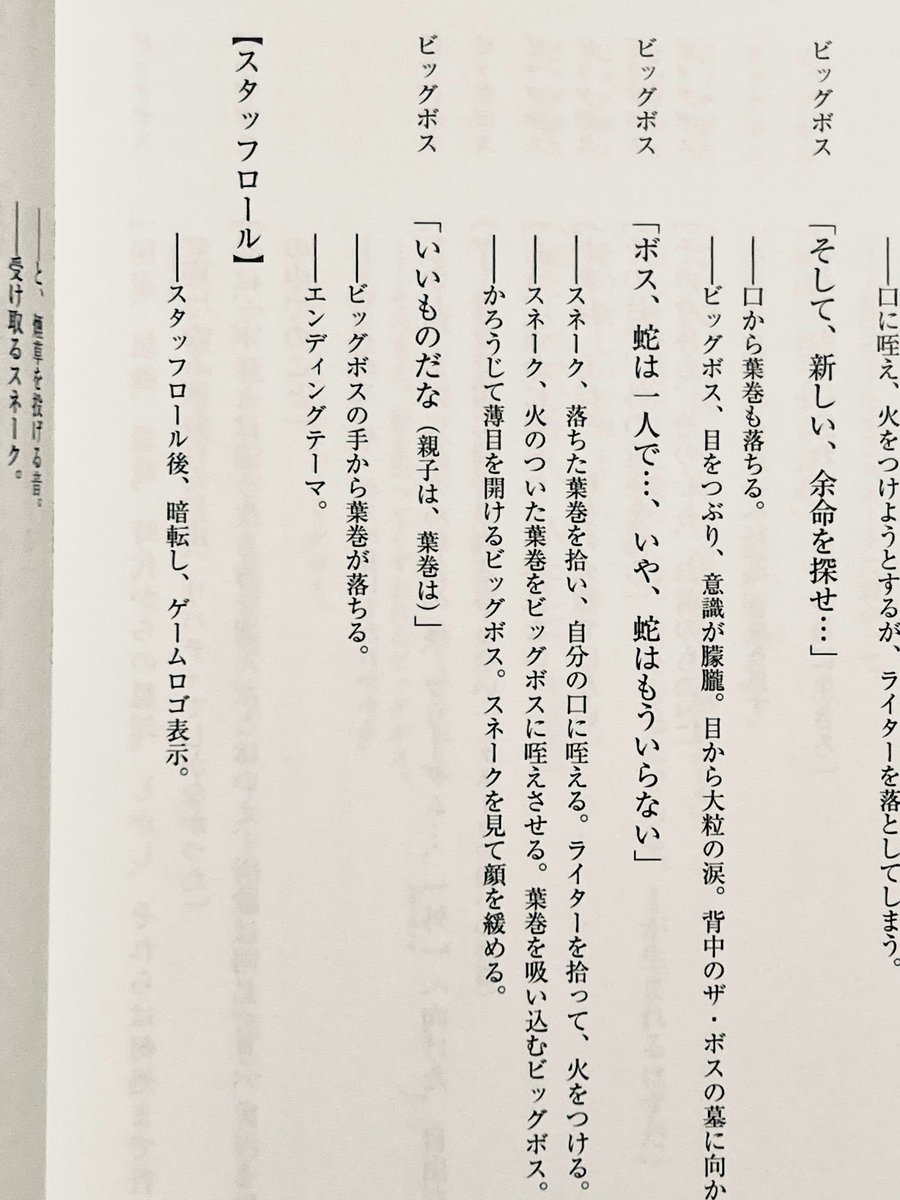 ――口に咥え、火をつけようとするが、ライターを落としてしまう。
ビッグボス　「そして、新しい、余命を探せ…」
――口から葉巻も落ちる。
――ビッグボス、目をつぶり、意識が朦朧。目から大粒の涙。背中のザ・ボスの墓に向か
ビッグボス　「ボス、蛇は一人で…、いや、蛇はもういらない」
――スネーク、落ちた葉巻を拾い、自分の口に咥える。ライターを拾って、火をつける。
――スネーク、火のついた葉巻をビッグボスに咥えさせる。葉巻を吸い込むビッグボス。
――かろうじて薄目を開けるビッグボス。スネークを見て顔を緩める。
ビッグボス　「いいものだな（親子は、葉巻は）」
――ビッグボスの手から葉巻が落ちる。
――エンディングテーマ。
【スタッフロール】
――スタッフロール後、暗転し、ゲームロゴ表示。
――と、煙草を投げる音。
――受け取るスネーク。